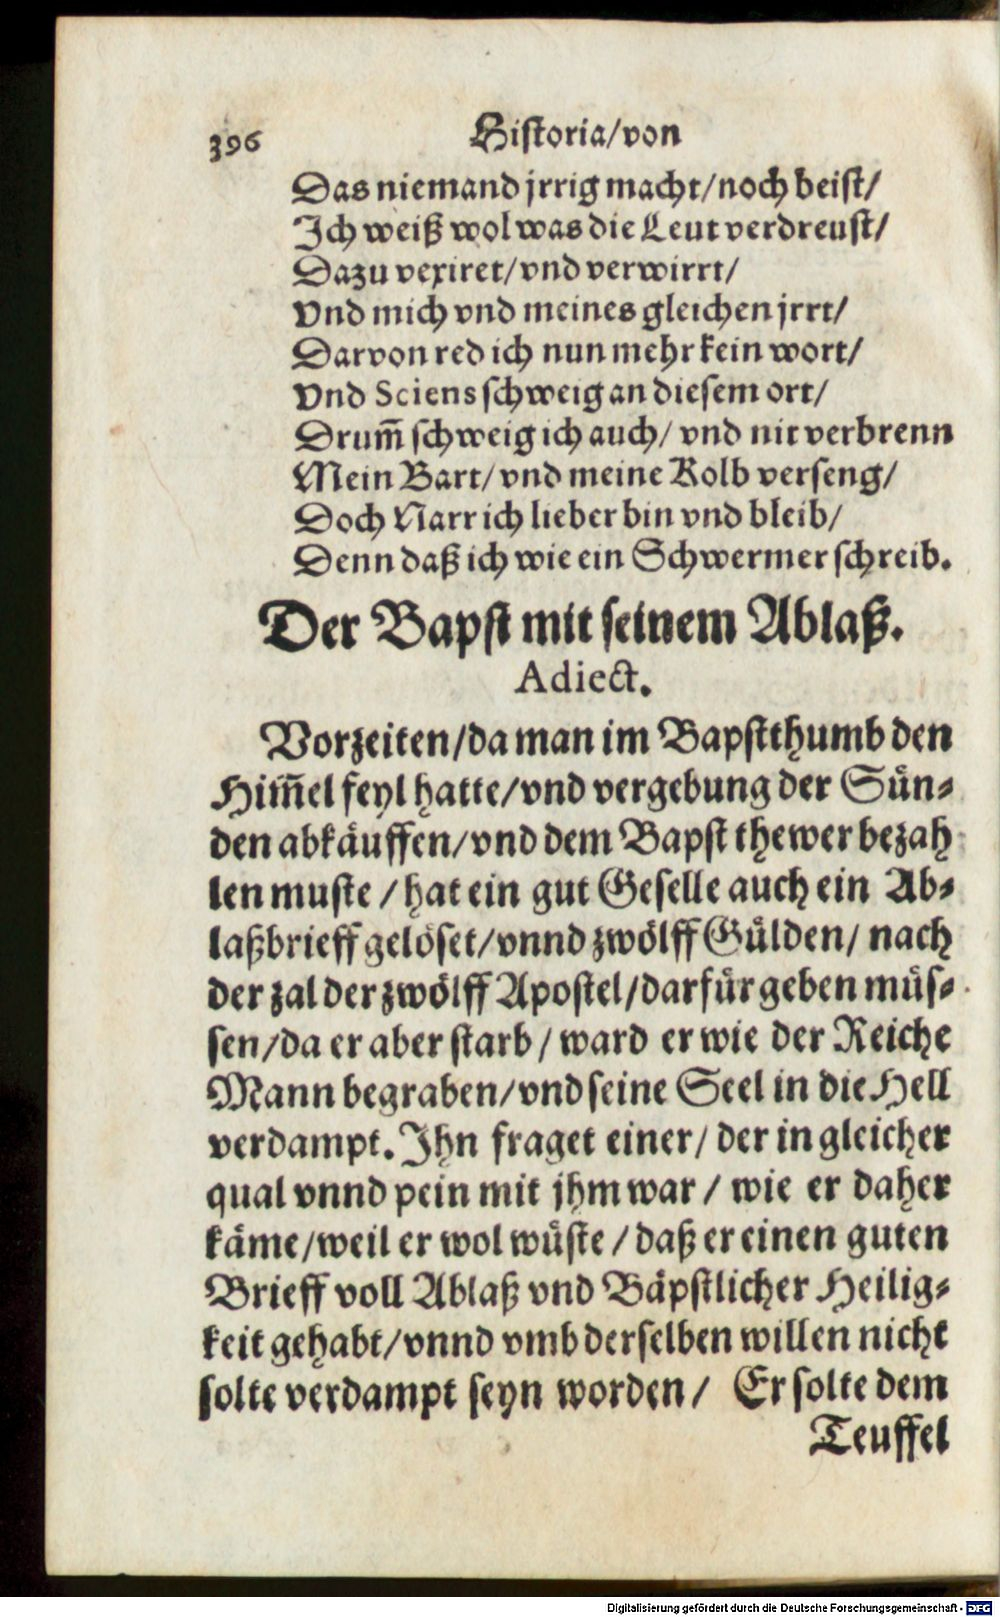 396 Historia/von
Das niemand jrrig macht/noch beist/
Ich weiß wol was die Leut verdreust/
Dazu vexiret/vnd verwirrt/
Vnd mich vnd meines gleichen jrrt/
Darvon red ich nun mehr kein wort/
Vnd Sciens schweig an diesem ort/
Drum̃ schweig ich auch/ vnd nit verbrenn
Mein Bart/ vnd meine Kolb verseng/
Doch Narr ich lieber bin vnd bleib/
Denn daß ich wie ein Schwermer schreib.
Der Bapst mit seinem Ablaß.
Adiect.
Vorzeiten/da man im Bapstthumb den
Him̃el feyl hatte/vnd vergebung der Sün-
den abkäuffen/vnd dem Bapst thewer bezah
len muste / hat ein gut Geselle auch ein Ab-
laßbrieff gelöset/vnnd zwölff Gülden/ nach
der zal der zwölff Apostel/darfür geben müs-
sen/da er aber starb / ward er wie der Reiche
Mann begraben/vnd seine Seel in die Hell
verdampt. Ihn fraget einer/ der in gleicher
qual vnnd pein mit jhm war / wie er daher
käme/weil er wol wüste / daß er einen guten
Brieff voll Ablaß vnd Bäpstlicher Heilig-
keit gehabt/vnnd vmb derselben willen nicht
solte verdampt seyn worden/ Er solte dem
Teuffel
Digitalisierung gefördert durch die Deutsche Forschungsgemeinschaft - DFG